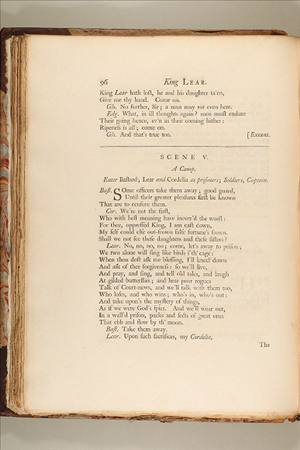 96 King LEAR.
King Lear hath lost, he and his daughter ta'en,
Give me thy hand. Come on.
Glo. No further, Sir; a man may rot even here.
Edg. What, in ill thoughts again? men must endure
Their going hence, ev'n as their coming hither:
Ripeness is all; come on.
Glo. And that's true too. [Exeunt.
SCENE V.
A Camp.
Enter Bastard; Lear and Cordelia as prisoners; Soldiers, Captain.
Bast. Some officers take them away; good guard,
Until their greater pleasures first be known
That are to censure them.
Cor. We're not the first,
Who with best meaning have incurr'd the worst:
For thee, oppressed King, I am cast down,
My self could else out-frown false fortune's frown.
Shall we not see these daughters and these sisters?
Lear. No, no, no, no; come, let's away to prison;
We two alone will sing like birds i'th' cage:
When thou dost ask me blessing, I'll kneel down
And ask of thee forgiveness: so we'll live,
And pray, and sing, and tell old tales, and laugh
At gilded butterflies; and hear poor rogues
Talk of Court-news, and we'll talk with them too,
Who loses, and who wins; who's in, who's out:
And take upon's the mystery of things,
As if we were God's spies. And we'll wear out,
In a wall'd prison, packs and sects of great ones
That ebb and flow by th' moon.
Bast. Take them away.
Lear. Upon such sacrifices, my Cordelia,
The